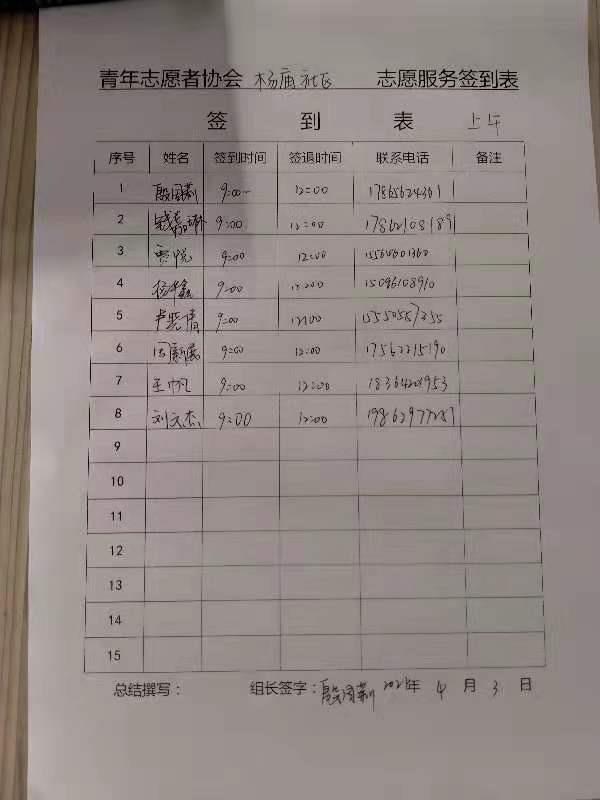 青年志愿者协会 杨庙社区 志愿服务签到表
签到表 上午
序号 姓名 签到时间 签退时间 联系电话 备注
1 9:00 12:00 17865624361
2 9:00 12:00 17862108189
3 贾悦 9:00 12:00
4 杨华鑫 9:00 12:00 15096108910
5 卢晓倩 9:00 12:00
6 9:00 12:00 17562215190
7 王帆 9:00 12:00
8 刘文杰 9:00 12:00
9
10
11
12
13
14
15
总结撰写： 组长签字： 2021年 4 月 3 日